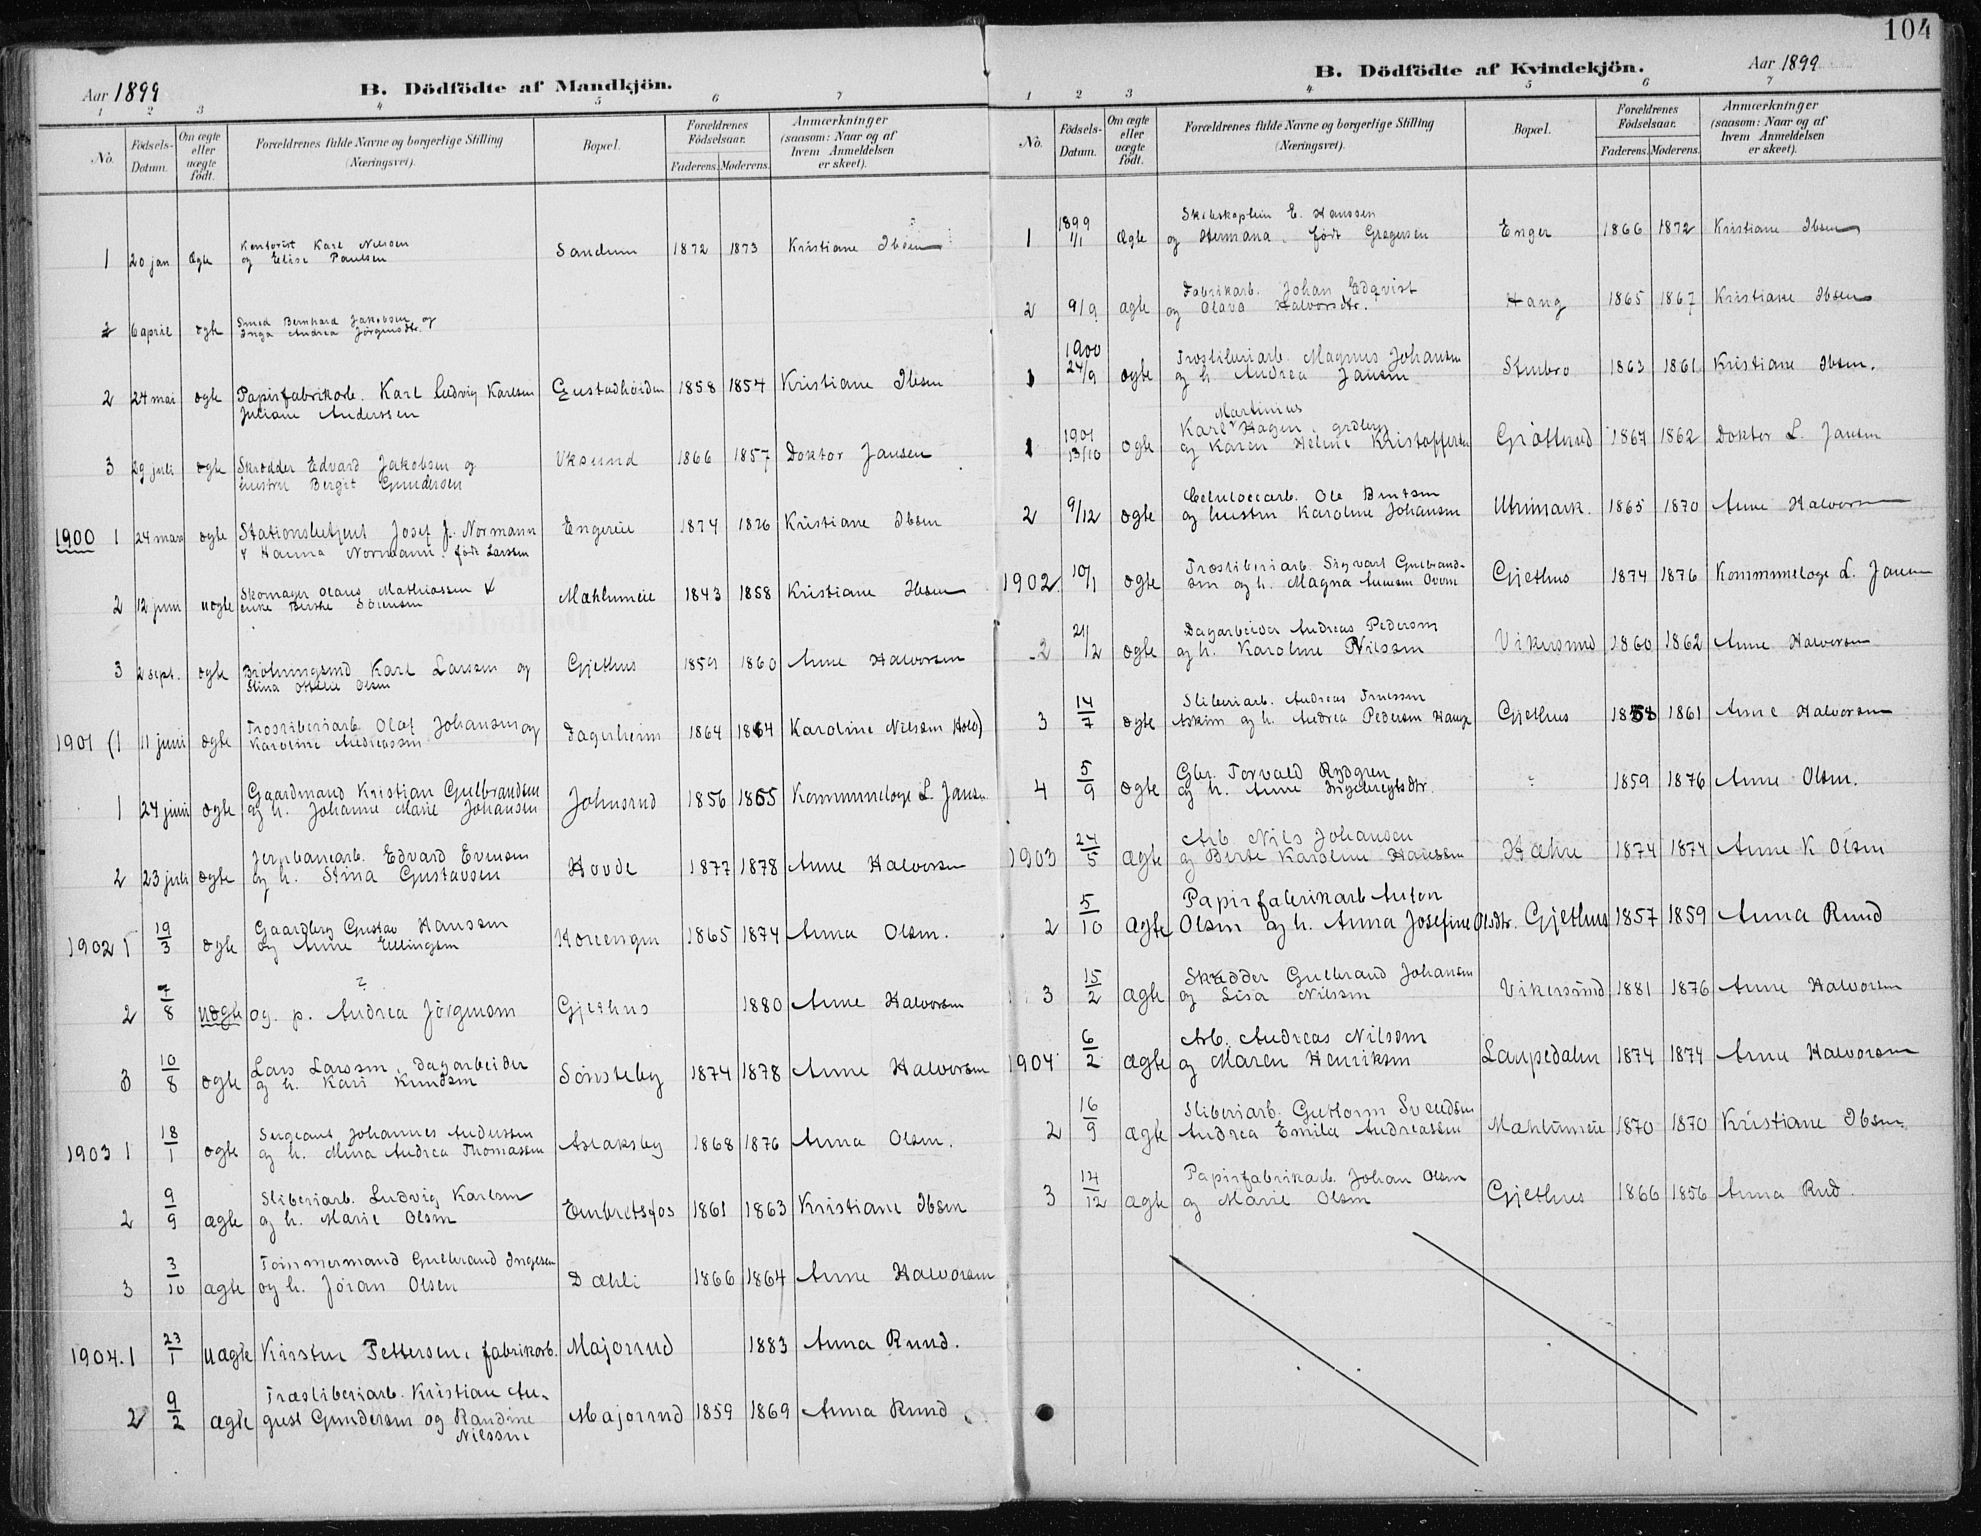 104
Aar 1899
B. Dödfödte af Mandkjön.
1 2 3 4 5 6 7
No.
Födsels-
Datum.
Om ægte
eller
uægte
födt.
Forældrenes fulde Navne og borgerlige Stilling
(Næringsvei).
Bopæl.
Forældrenes
Födselsaar.
Faderens. Moderens.
Anmærkninger
(saasom: Naar og af
hvem Anmeldelsen
er skeet).
Kontorist Karl Nielsen
1 20 jan Ægte og Elise Paulsen Sandum 1872 1873 Kristiane Ibsen
Smed Bernhard Jakobsen og
2 6 april ægte Inga Andrea Jörgensdtr.
2 24 mai ægte Papirfabrikarb. Karl Ludvig Karlsen Gustadheiden 1858 1854 Kristiane Ibsen
Juliane Anderssen
3 29 juli ægte Skrædder Edvard Jakobsen og Viksund 1866 1857 Doktor Jansen
hustru Bergit Gundersen
1900 1 24 mars ægte Stationsbetjent Josef J. Normann Engereie 1874 1876 Kristiane Ibsen
& Hanna Normann födt Larsen
Skomager Olaus Mathiassen &
2 12 juni uægte enke Birthe Sörensen Mæhlumeie 1843 1858 Kristiane Ibsen
3 2 sept. ægte Karl Larsen og Gjethus 1859 1860 Anne Halvorsen
Stina Ottilie Olsen
1901 (1 11 juni ægte Træsliberiarb. Olaf Johansen og Fagerheim 1864 1864 Karoline Nilsen Hold)
Karoline Andreassen
Gaardmand Kristian Gulbrandsen
1 24 juni ægte og h. Johanne Marie Johansen Johnsrud 1856 1865 Kommunelæge L. Jansen
Jernbanearb. Edvard Evensen
2 23 juli ægte og h. Stina Gustavsen Hovde 1877 1878 Anne Halvorsen
Gaardbrg Gustav Hanssen
1902 1 19/3 ægte og Anne Ellingsen 1865 1874 Anna Olsen.
?
2 7/8 uægte og p. Andrea Jörgensen Gjethus 1880 Anne Halvorsen
Lars Larssen, dagarbeider
3 10/8 ægte og h. Kari Knudsen Sönsteby 1874 1878 Anne Halvorsen
Sergeant Johannes Anderssen
1903 1 18/1 ægte og h. Mina Andrea Thomassen Aslaksby 1868 1876 Anna Olsen.
Sliberiarb. Ludvig Karlsen
2 9/9 ægte og h. Marie Olsen Embretsfos 1861 1863 Kristiane Ibsen
Tömmermand Gulbrand Ingesen
3 3/10 ægte og h. Jöran Olsen Dæhli 1866 1864 Anne Halvorsen
1904. 1 23/1 uægte Kirsten Pettersen, fabrikarb. Majorrud 1883 Anna Ruud.
Træsliberiarb. Kristian Au-
2 9/2 ægte gust Gundersen og Randine Majorrud 1859 1869 Anna Ruud
Nilssen
B. Dödfödte af Kvindekjön.
Aar 1899
1 2 3 4 5 6 7
No.
Födsels-
Datum.
Om ægte
eller
uægte
födt.
Forældrenes fulde Navne og borgerlige Stilling
(Næringsvei).
Bopæl.
Forældrenes
Födselsaar.
Faderens. Moderens.
Anmærkninger
(saasom: Naar og af
hvem Anmeldelsen
er skeet).
1899 Skibskaptein E. Hanssen
1 1/1 Ægte og Hermana, födt Gregersen Enger 1866 1872 Kristiane Ibsen
Fabrikarb. Johan Edqvist
2 9/9 ægte og Olava Halvorsdtr. Haug 1865 1867 Kristiane Ibsen
1900
Træsliberiarb. Magnus Johansen
1 24/9 ægte og h. Andrea Jansen Stubro 1863 1861 Kristiane Ibsen.
Martinius
1901 Karl Hagen, grdbrg
1 13/10 ægte og Karen Helene Kristoffersen 1867 1862 Doktor L. Jansen
Celulocearb. Ole Berntsen
2 9/12 ægte og hustru Karoline Johansen Utnimark. 1865 1870 Anne Halvorsen
Træsliberiarb. Sigvart Gulbrand-
1902 10/1 ægte sen og h. Magna Gjethus 1874 1876 Kommunelæge L. Jansen
Dagarbeider Andreas Pedersen
2 21/2 ægte og h. Karoline Nilssen Vikersund 1860 1862 Anne Halvorsen
Sliberiarb. Andreas
3 14/7 ægte Askim og h. Andrea Pedersen Haug Gjethus 1858 1861 Anne Halvorsen
Gbr. Torvald Rydgren
4 5/9 ægte og h. Anne Ingebregtsdtr. 1859 1876 Anne Olsen.
Arb. Nils Johansen
1903 24/5 ægte og Berte Karoline Hanssen Hæhre 1874 1874 Anne K Olsen
Papirfabrikarb Anton
2 5/10 ægte Olsen og h. Anna Josefine Olsdtr. Gjethus 1857 1859 Anna Ruud
Skrædder Gulbrand Johansen
3 15/2 ægte og Lisa Nilsen Vikersund 1881 1876 Anne Halvorsen
Arb. Andreas Nilsen
1904 6/2 ægte og Maren Henriksen Laupedalen 1874 1874 Anne Halvorsen
Sliberiarb. Guttorm Svendsen
2 16/9 ægte Andrea Emilie Andreassen Mæhlumeie 1870 1870 Kristiane Ibsen
Papirfabrikarb. Johan Olsen
3 14/12 ægte og Marie Olsen Gjethus 1866 1856 Anna Rud.